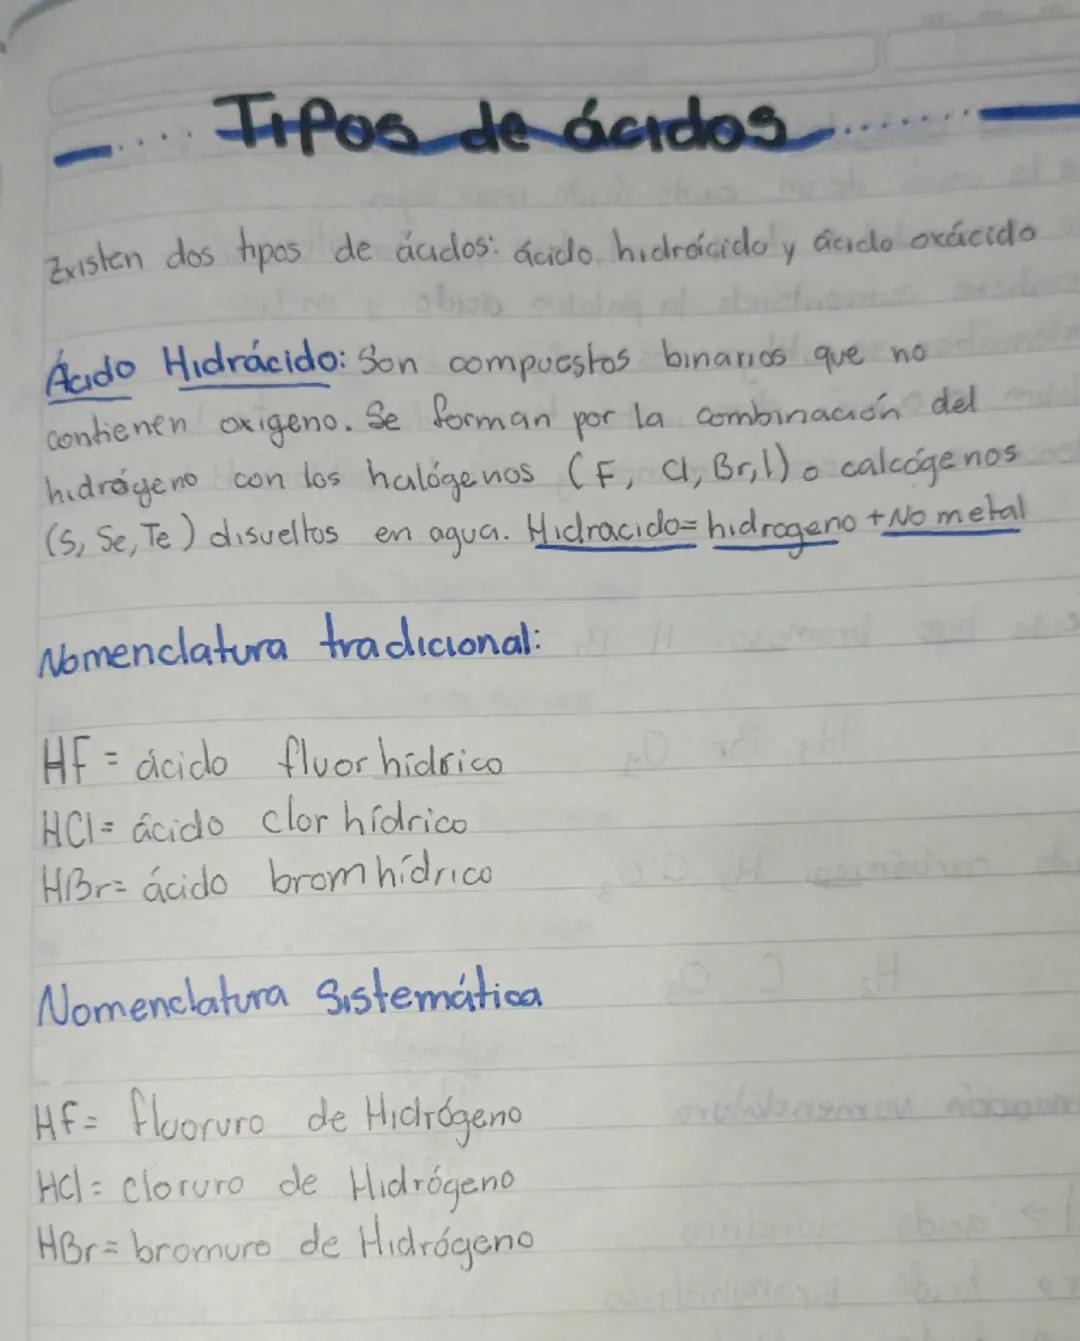 Tipos de ácidos
Existen dos tipos de ácidos: ácido hidrácido y ácido oxácido
Ácido Hidrácido: Son compuestos binarios que no
contienen oxigeno. Se forman por la combinación del
hidrógeno con los halógenos (F, Cl, Br, I) o calcógenos
(S, Se, Te) disueltos en agua. Hidracido= hidrogeno + No metal
Nomenclatura tradicional:
HF = ácido fluorhídrico
HCl = ácido clorhídrico
HBr= ácido bromhídrico
Nomenclatura Sistemática
Hf= fluoruro de Hidrógeno
HCl = cloruro de Hidrógeno
HBr= bromuro de Hidrógeno